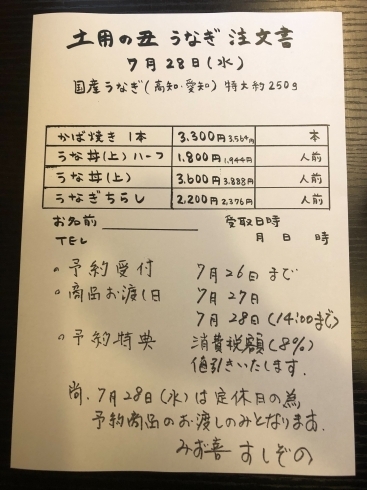 土用の丑 うなぎ 注文書
7月28日(水)
国産うなぎ(高知・愛知) 特大約250g
かば焼き 1本 3,300円 3,564円 本
うな丼(上)ハーフ 1,800円 1,944円 人前
うな丼(上) 3,600円 3,888円 人前
うなぎちらし 2,200円 2,376円 人前
お名前 受取日時
TEL 月 日 時
。予約受付 7月26日まで
。商品お渡し日 7月27日
7月28日(14:00まで)
。予約特典 消費税額(8%)
値引きいたします。
尚、7月28日(水)は定休日の為
予約商品のお渡しのみとなります。
みず喜 すしぞの